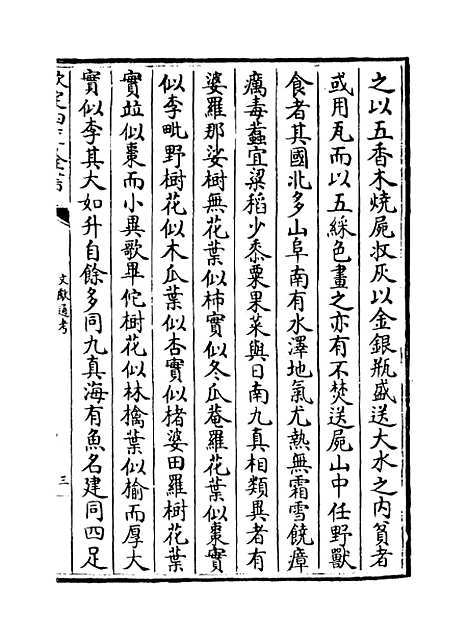 之以五香木燒屍收灰以金銀瓶盛送大水之内貧者
或用瓦而以五綵色畫之亦有不焚送屍山中任野獸
食者其國北多山阜南有水澤地氣尤熱無霜雪饒瘴
癘毒蠚宜粱稻少黍粟果菜與日南九真相類異者有
婆羅那娑樹無花葉似柿實似冬瓜菴羅花葉似棗實
似李毗野樹花似木瓜葉似杏實似楮婆田羅樹花葉
實竝似棗而小異歌畢佗樹花似林檎葉似榆而厚大
實似李其大如升自餘多同九真海有魚名建同四足
欽定四庫全書
文獻通考
三